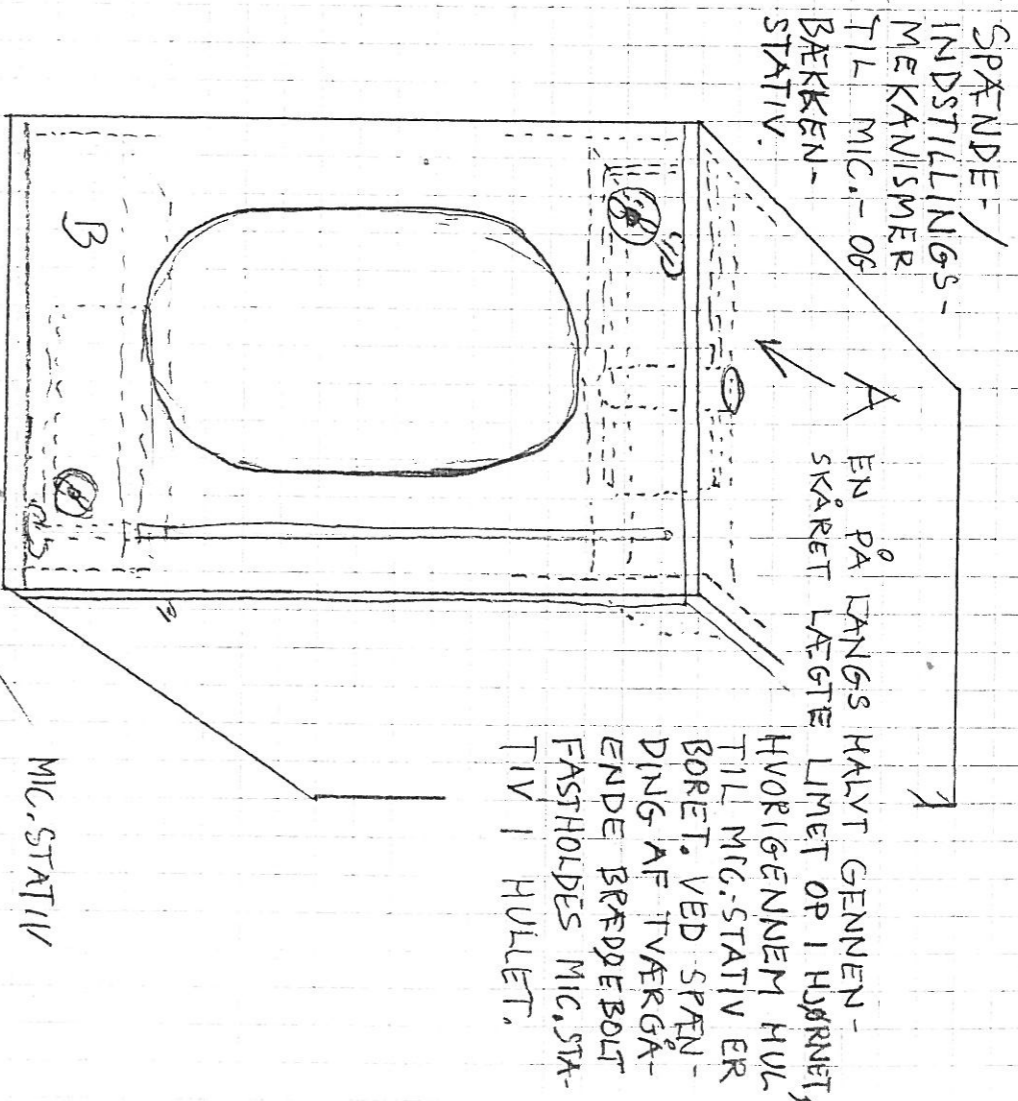 SPÆNDE-/
INDSTILLINGS-
MEKANISMER
TIL MIC.- OG
BÆKKEN-
STATIV.
A
EN PÅ LANGS HALVT GENNEN-
SKÅRET LÆGTE LIMET OP I HJØRNET,
HVORIGENNEM HUL
TIL MIC.STATIV ER
BORET. VED SPÆN-
DING AF TVÆRGÅ-
ENDE BRÆDDEBOLT
FASTHOLDES MIC.STA-
TIV I HULLET.
B
MIC.STATIV